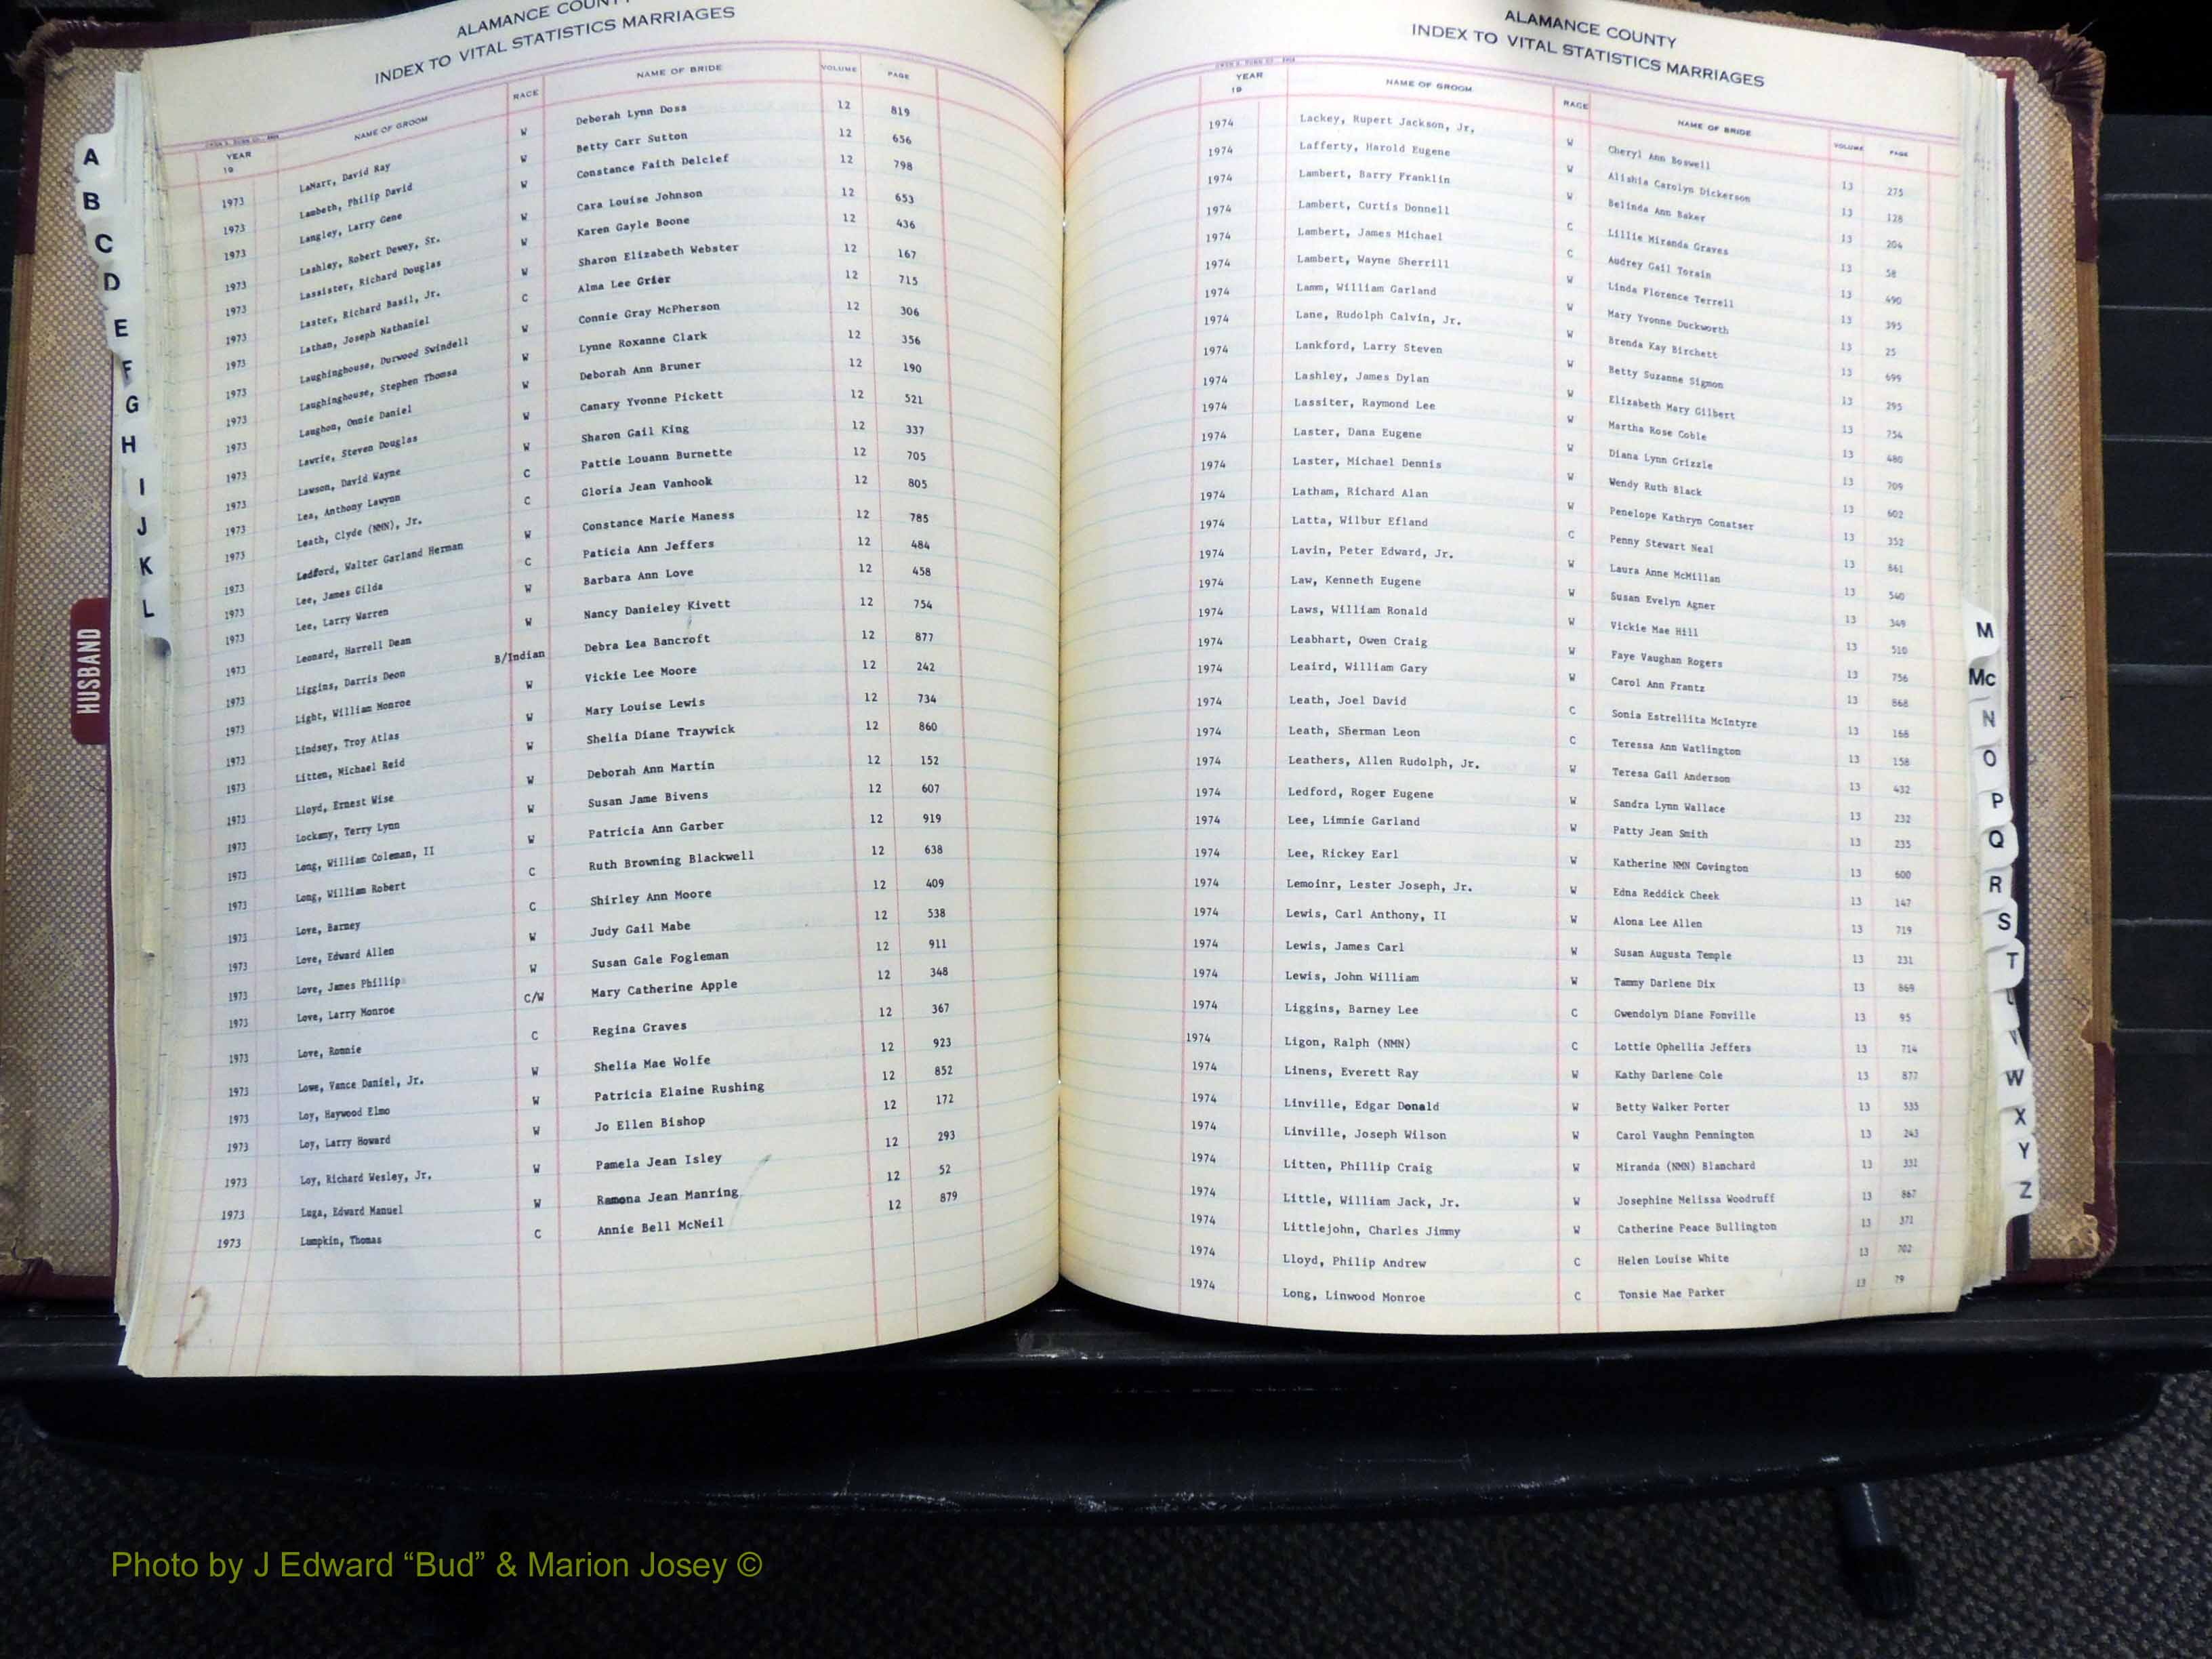 ALAMANCE COUNTY
INDEX TO VITAL STATISTICS MARRIAGES
YEAR 19 NAME OF GROOM RACE NAME OF BRIDE VOLUME PAGE
1973 LaMarr, David Ray W Deborah Lynn Doss 12 819
1973 Lambeth, Philip David W Betty Carr Sutton 12 656
1973 Langley, Larry Gene W Constance Faith Delclef 12 798
1973 Lashley, Robert Dewey, Sr. W Cara Louise Johnson 12 653
1973 Lassister, Richard Douglas W Karen Gayle Boone 12 436
1973 Laster, Richard Basil, Jr. W Sharon Elizabeth Webster 12 167
1973 Lathan, Joseph Nathaniel C Alma Lee Grier 12 715
1973 Laughinghouse, Durwood Swindell W Connie Gray McPherson 12 306
1973 Laughinghouse, Stephen Thomsa W Lynne Roxanne Clark 12 356
1973 Laughon, Onnie Daniel W Deborah Ann Bruner 12 190
1973 Lawrie, Steven Douglas W Canary Yvonne Pickett 12 521
1973 Lawson, David Wayne W Sharon Gail King 12 337
1973 Lea, Anthony Lawynn C Pattie Louann Burnette 12 705
1973 Leath, Clyde (NMN), Jr. C Gloria Jean Vanhook 12 805
1973 Ledford, Walter Garland Herman W Constance Marie Maness 12 785
1973 Lee, James Gilda C Paticia Ann Jeffers 12 484
1973 Lee, Larry Warren W Barbara Ann Love 12 458
1973 Leonard, Harrell Dean W Nancy Danieley Kivett 12 754
1973 Liggins, Darris Deon B/Indian Debra Lea Bancroft 12 877
1973 Light, William Monroe W Vickie Lee Moore 12 242
1973 Lindsey, Troy Atlas W Mary Louise Lewis 12 734
1973 Litten, Michael Reid W Shelia Diane Traywick 12 860
1973 Lloyd, Ernest Wise W Deborah Ann Martin 12 152
1973 Lockamy, Terry Lynn W Susan Jame Bivens 12 607
1973 Long, William Coleman, II W Patricia Ann Garber 12 919
1973 Long, William Robert C Ruth Browning Blackwell 12 638
1973 Love, Barney C Shirley Ann Moore 12 409
1973 Love, Edward Allen W Judy Gail Mabe 12 538
1973 Love, James Phillip W Susan Gale Fogleman 12 911
1973 Love, Larry Monroe C/W Mary Catherine Apple 12 348
1973 Love, Ronnie C Regina Graves 12 367
1973 Lowe, Vance Daniel, Jr. W Shelia Mae Wolfe 12 923
1973 Loy, Haywood Elmo W Patricia Elaine Rushing 12 852
1973 Loy, Larry Howard W Jo Ellen Bishop 12 172
1973 Loy, Richard Wesley, Jr. W Pamela Jean Isley 12 293
1973 Luga, Edward Manuel W Ramona Jean Manring 12 52
1973 Lumpkin, Thomas C Annie Bell McNeil 12 879
ALAMANCE COUNTY
INDEX TO VITAL STATISTICS MARRIAGES
YEAR 19 NAME OF GROOM RACE NAME OF BRIDE VOLUME PAGE
1974 Lackey, Rupert Jackson, Jr. W Cheryl Ann Boswell 13 275
1974 Lafferty, Harold Eugene W Alishia Carolyn Dickerson 13 128
1974 Lambert, Barry Franklin W Belinda Ann Baker 13 204
1974 Lambert, Curtis Donnell C Lillie Miranda Graves 13 58
1974 Lambert, James Michael C Audrey Gail Torain 13 490
1974 Lambert, Wayne Sherrill W Linda Florence Terrell 13 395
1974 Lamm, William Garland W Mary Yvonne Duckworth 13 25
1974 Lane, Rudolph Calvin, Jr. W Brenda Kay Birchett 13 699
1974 Lankford, Larry Steven W Betty Suzanne Sigmon 13 295
1974 Lashley, James Dylan W Elizabeth Mary Gilbert 13 754
1974 Lassiter, Raymond Lee W Martha Rose Coble 13 480
1974 Laster, Dana Eugene W Diana Lynn Grizzle 13 709
1974 Laster, Michael Dennis W Wendy Ruth Black 13 602
1974 Latham, Richard Alan W Penelope Kathryn Conatser 13 352
1974 Latta, Wilbur Efland C Penny Stewart Neal 13 861
1974 Lavin, Peter Edward, Jr. W Laura Anne McMillan 13 540
1974 Law, Kenneth Eugene W Susan Evelyn Agner 13 349
1974 Laws, William Ronald W Vickie Mae Hill 13 510
1974 Leabhart, Owen Craig W Faye Vaughan Rogers 13 756
1974 Leaird, William Gary W Carol Ann Frantz 13 868
1974 Leath, Joel David C Sonia Estrellita McIntyre 13 168
1974 Leath, Sherman Leon C Teressa Ann Watlington 13 158
1974 Leathers, Allen Rudolph, Jr. W Teresa Gail Anderson 13 432
1974 Ledford, Roger Eugene W Sandra Lynn Wallace 13 232
1974 Lee, Limnie Garland W Patty Jean Smith 13 235
1974 Lee, Rickey Earl W Katherine NMN Covington 13 600
1974 Lemoinr, Lester Joseph, Jr. W Edna Reddick Cheek 13 147
1974 Lewis, Carl Anthony, II W Alona Lee Allen 13 719
1974 Lewis, James Carl W Susan Augusta Temple 13 231
1974 Lewis, John William W Tammy Darlene Dix 13 869
1974 Liggins, Barney Lee C Gwendolyn Diane Fonville 13 95
1974 Ligon, Ralph (NMN) C Lottie Ophellia Jeffers 13 714
1974 Linens, Everett Ray W Kathy Darlene Cole 13 877
1974 Linville, Edgar Donald W Betty Walker Porter 13 535
1974 Linville, Joseph Wilson W Carol Vaughn Pennington 13 243
1974 Litten, Phillip Craig W Miranda (NMN) Blanchard 13 331
1974 Little, William Jack, Jr. W Josephine Melissa Woodruff 13 867
1974 Littlejohn, Charles Jimmy W Catherine Peace Bullington 13 371
1974 Lloyd, Philip Andrew C Helen Louise White 13 702
1974 Long, Linwood Monroe C Tonsie Mae Parker 13 79
A
B
C
D
E
F
G
H
I
J
K
L
HUSBAND
M
Mc
N
O
P
Q
R
S
T
W
X
Y
Z
Photo by J Edward “Bud” & Marion Josey ©